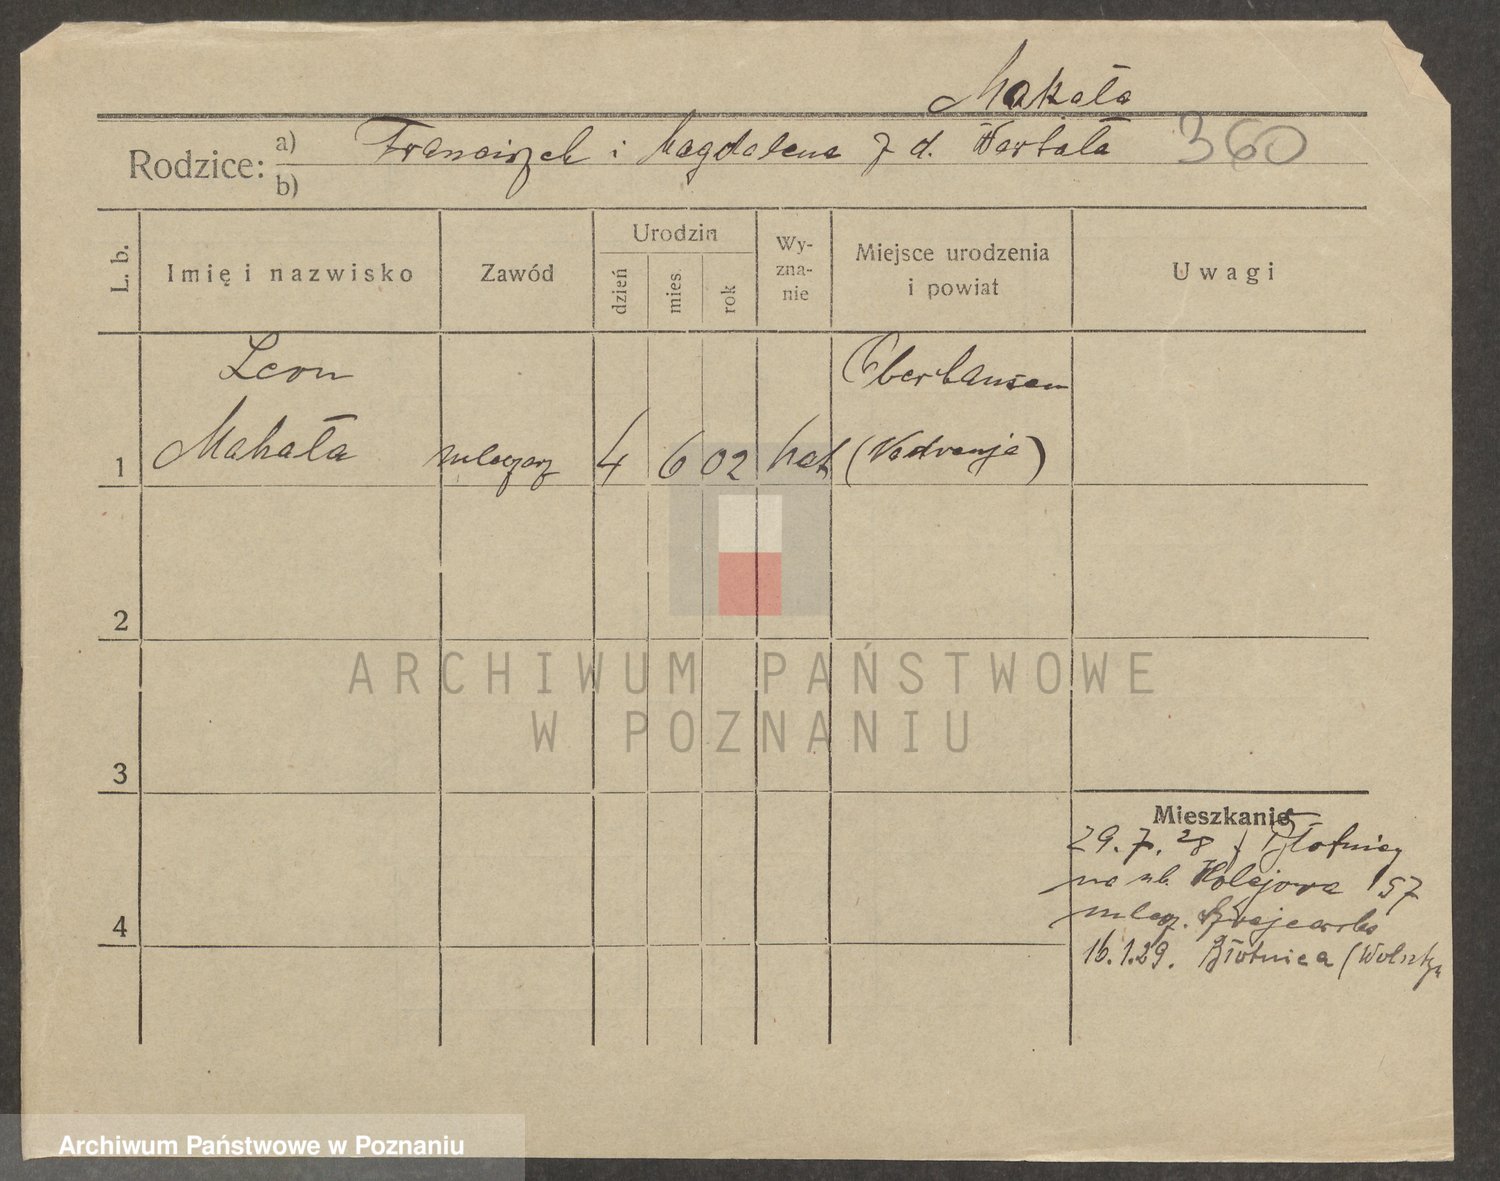 Makała
Rodzice: a) Franciszek i Magdalena z d. Wartała 360
b)
L. b.
Imię i nazwisko
Zawód
Urodzin
dzień
mies.
rok
Wy-
zna-
nie
Miejsce urodzenia
i powiat
Uwagi
Leon Oberhausen
1 Makała mleczarz 4 6 02 kat (Nadrenja)
2
3
4
Mieszkanie
29.7.28 z Błotnicy
na ul. Kolejowa 57
mlecz.
16.1.29. Błotnica (Wolszty
ARCHIWUM PAŃSTWOWE
W POZNANIU
Archiwum Państwowe w Poznaniu